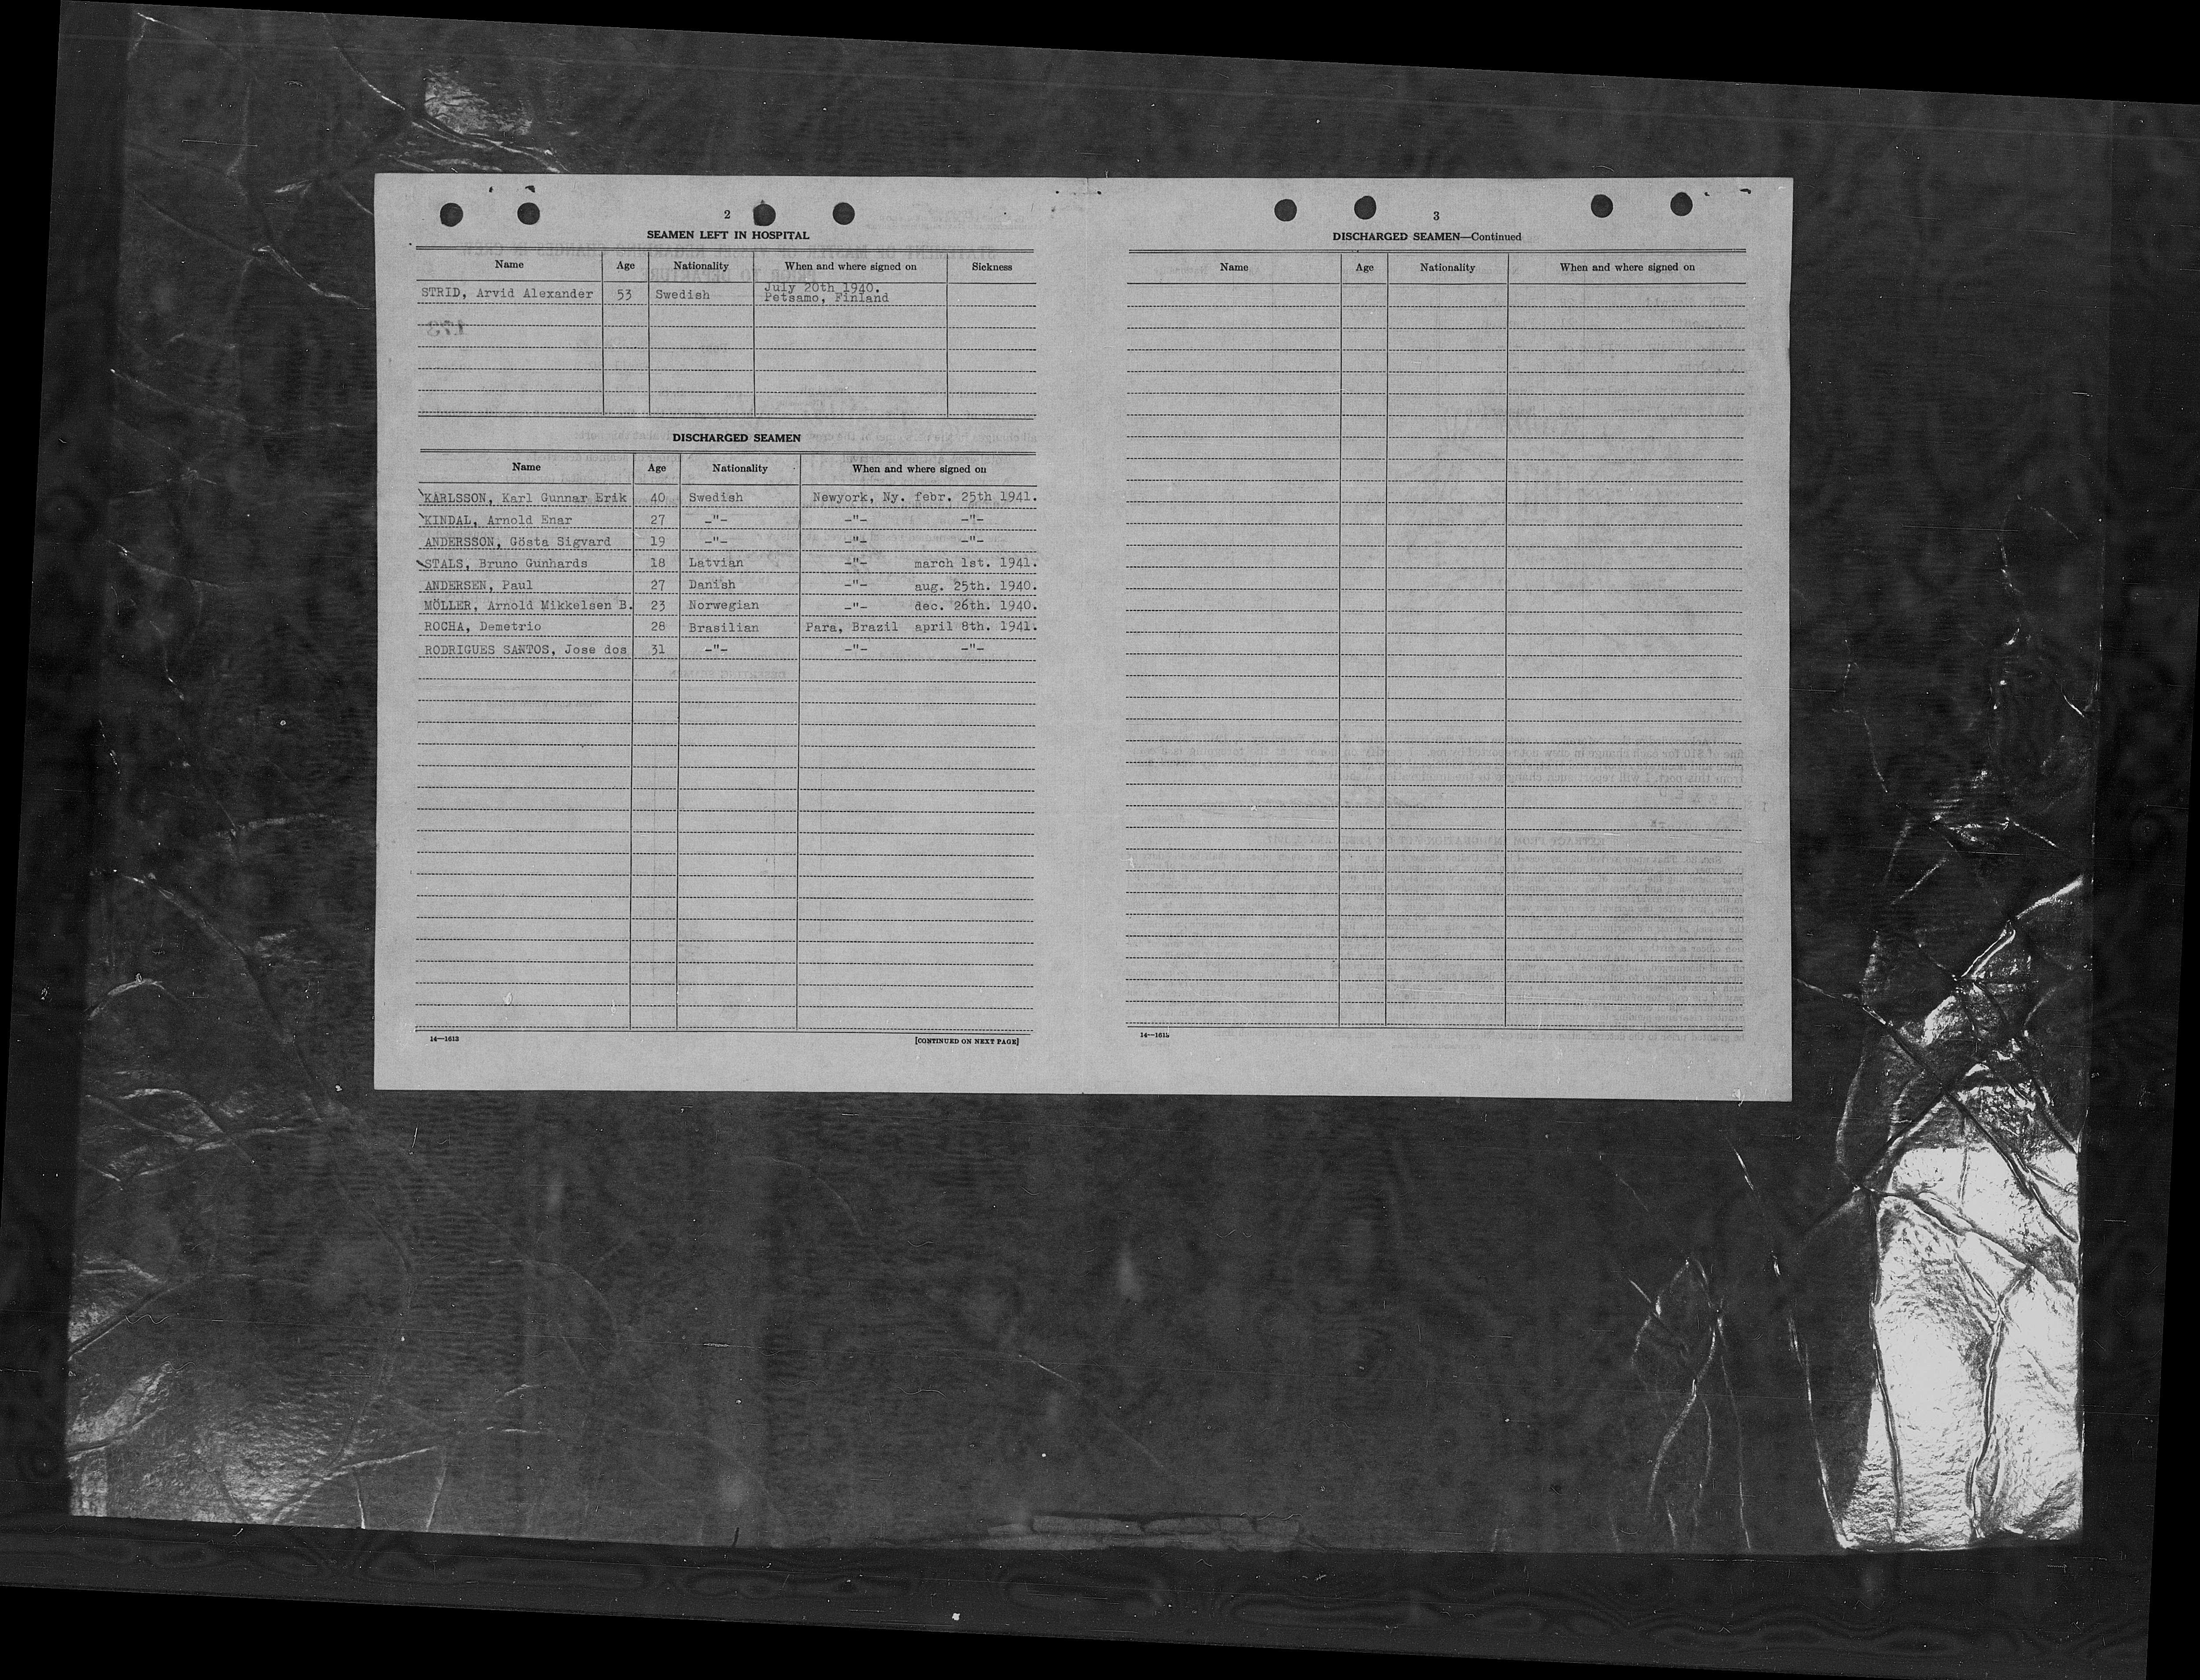 2
SEAMEN LEFT IN HOSPITAL
Name Age Nationality When and where signed on Sickness
STRID, Arvid Alexander 53 Swedish July 20th 1940.
Petsamo, Finland
DISCHARGED SEAMEN
Name Age Nationality When and where signed on
KARLSSON, Karl Gunnar Erik 40 Swedish Newyork, Ny. febr. 25th 1941.
KINDAL, Arnold Enar 27 -"- -"- -"-
ANDERSSON, Gösta Sigvard 19 -"- -"- -"-
STALS, Bruno Gunhards 18 Latvian -"- march 1st. 1941.
ANDERSEN, Paul 27 Danish -"- aug. 25th. 1940.
MÖLLER, Arnold Mikkelsen B. 23 Norwegian -"- dec. 26th. 1940.
ROCHA, Demetrio 28 Brasilian Para, Brazil april 8th. 1941.
RODRIGUES SANTOS, Jose dos 31 -"- -"- -"-
14—1613 [CONTINUED ON NEXT PAGE]
3
DISCHARGED SEAMEN—Continued
Name Age Nationality When and where signed on